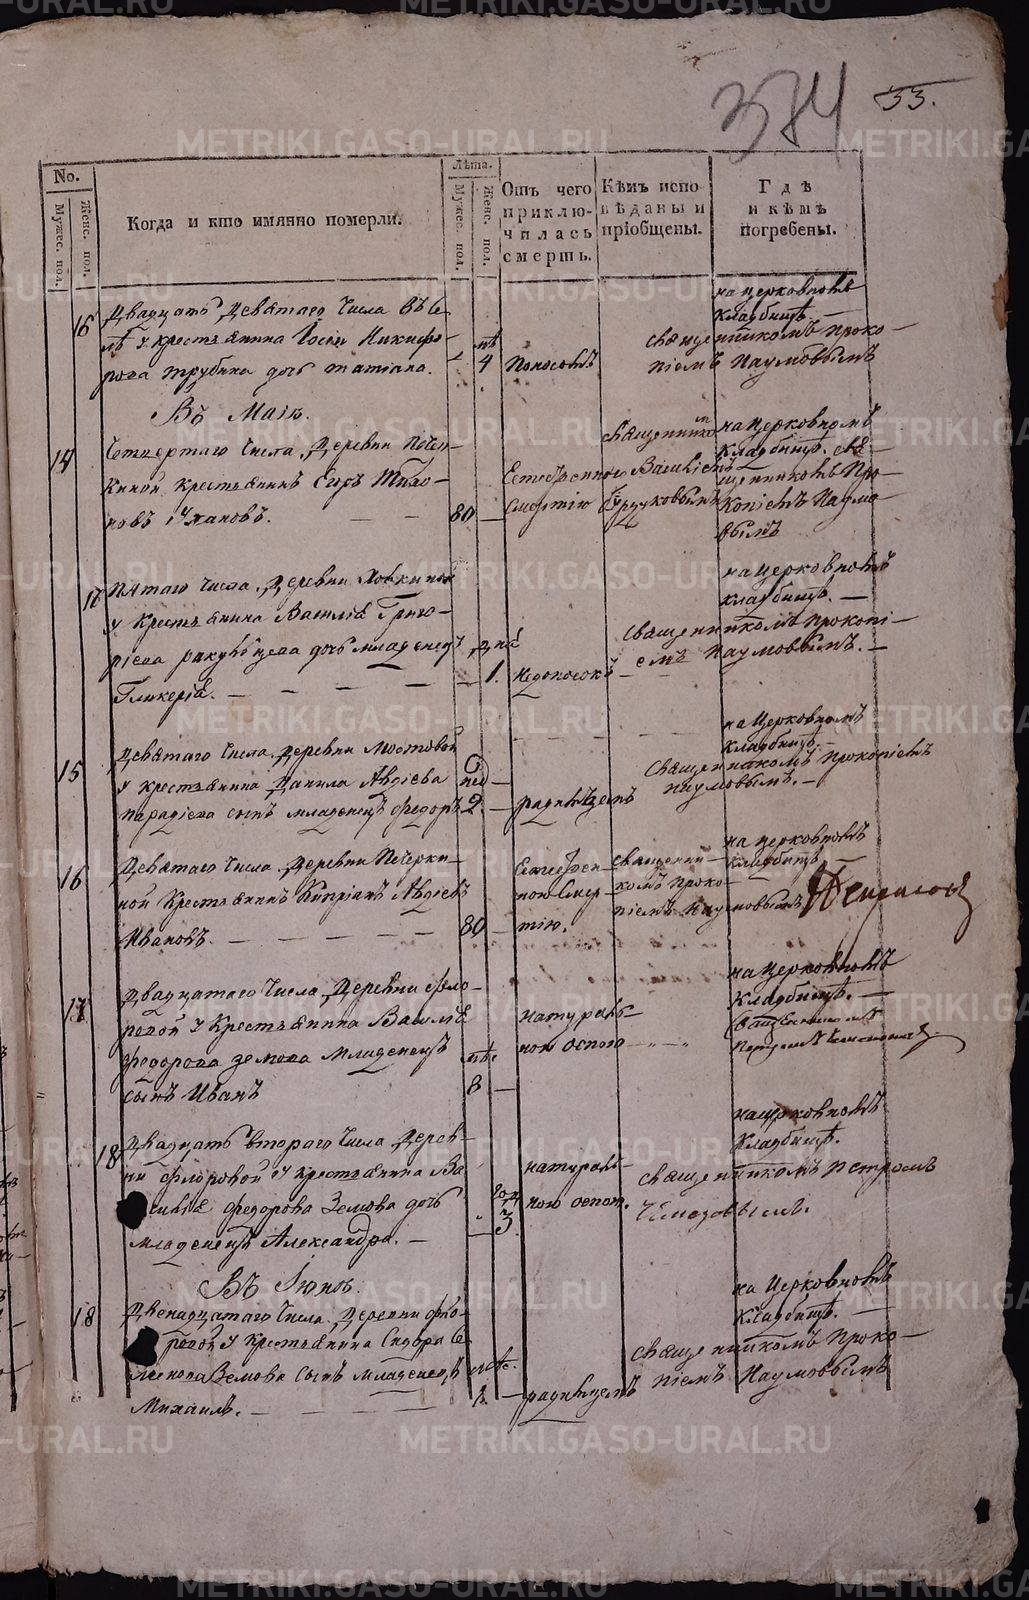 METRIKI.GASO-URAL.RU
384
33.
No.
Мужес. пол.
Женс. пол.
Когда и кто имянно померли.
Лѣта.
Мужес. пол.
Женс. пол.
Отъ чего
приклю-
чилась
смерть.
Кѣмъ испо
вѣданы и
прiобщены.
Гдѣ
и кѣмъ
погребены.
16
Двадцать Девятаго Числа въ Се
лѣ у крестьянина Никифо-
рова Трубина дочь Татiана.
4
Поносомъ
на церковномъ
кладбищѣ.
священникомъ Проко-
пiемъ Наумовымъ
Въ Маiѣ.
14
Четвертаго Числа, Деревни Печер-
киной крестьянинъ Тихо-
новъ
80
Естественною
смертiю
священни
Василiемъ
на церковномъ
кладбищѣ. свя-
щенникомъ Про-
копiемъ Наумо-
вымъ
17
Пятаго числа, Деревни
у крестьянина Василiя Григо-
рiева дочь младенецъ
Гликерiя.
дня
1.
недоносокъ
на церковномъ
кладбищѣ.
священникомъ Прокопi-
емъ Наумовымъ.
15
Девятаго Числа, Деревни Мостовой
у крестьянина Данила Авдiева
сынъ младенецъ Федоръ
нед
2.
родимцемъ
на церковномъ
кладбищѣ
священникомъ Прокопiемъ
Наумовымъ.
16
Девятаго Числа Деревни Печерки-
ной крестьянинъ Кипрiянъ Авдiевъ
Ивановъ.
80
Естествен
ною смер
тiю.
священни-
комъ Проко-
пiемъ Наумовымъ
на церковномъ
кладбищѣ
17
Двадцатаго Числа, Деревни Фло-
ровой у крестьянина Василiя
Федорова Земова младенецъ
сынъ Иванъ
8
натураль-
ною оспою
на церковномъ
кладбищѣ.
священникомъ
Петромъ
18
Двадцать втораго Числа Дерев-
ни Флоровой у крестьянина Ва
силiя Федорова Земова дочь
младенецъ Александра.
3
натураль-
ною оспою.
на церковномъ
кладбищѣ.
священникомъ Петромъ
Въ Iюнѣ.
18
Двенадцатаго Числа Деревни Фло-
ровой у крестьянина Сидора Се
менова Земова сынъ младенецъ
Михаилъ.
родимцемъ
на церковномъ
кладбищѣ.
священникомъ Проко-
пiемъ Наумовымъ